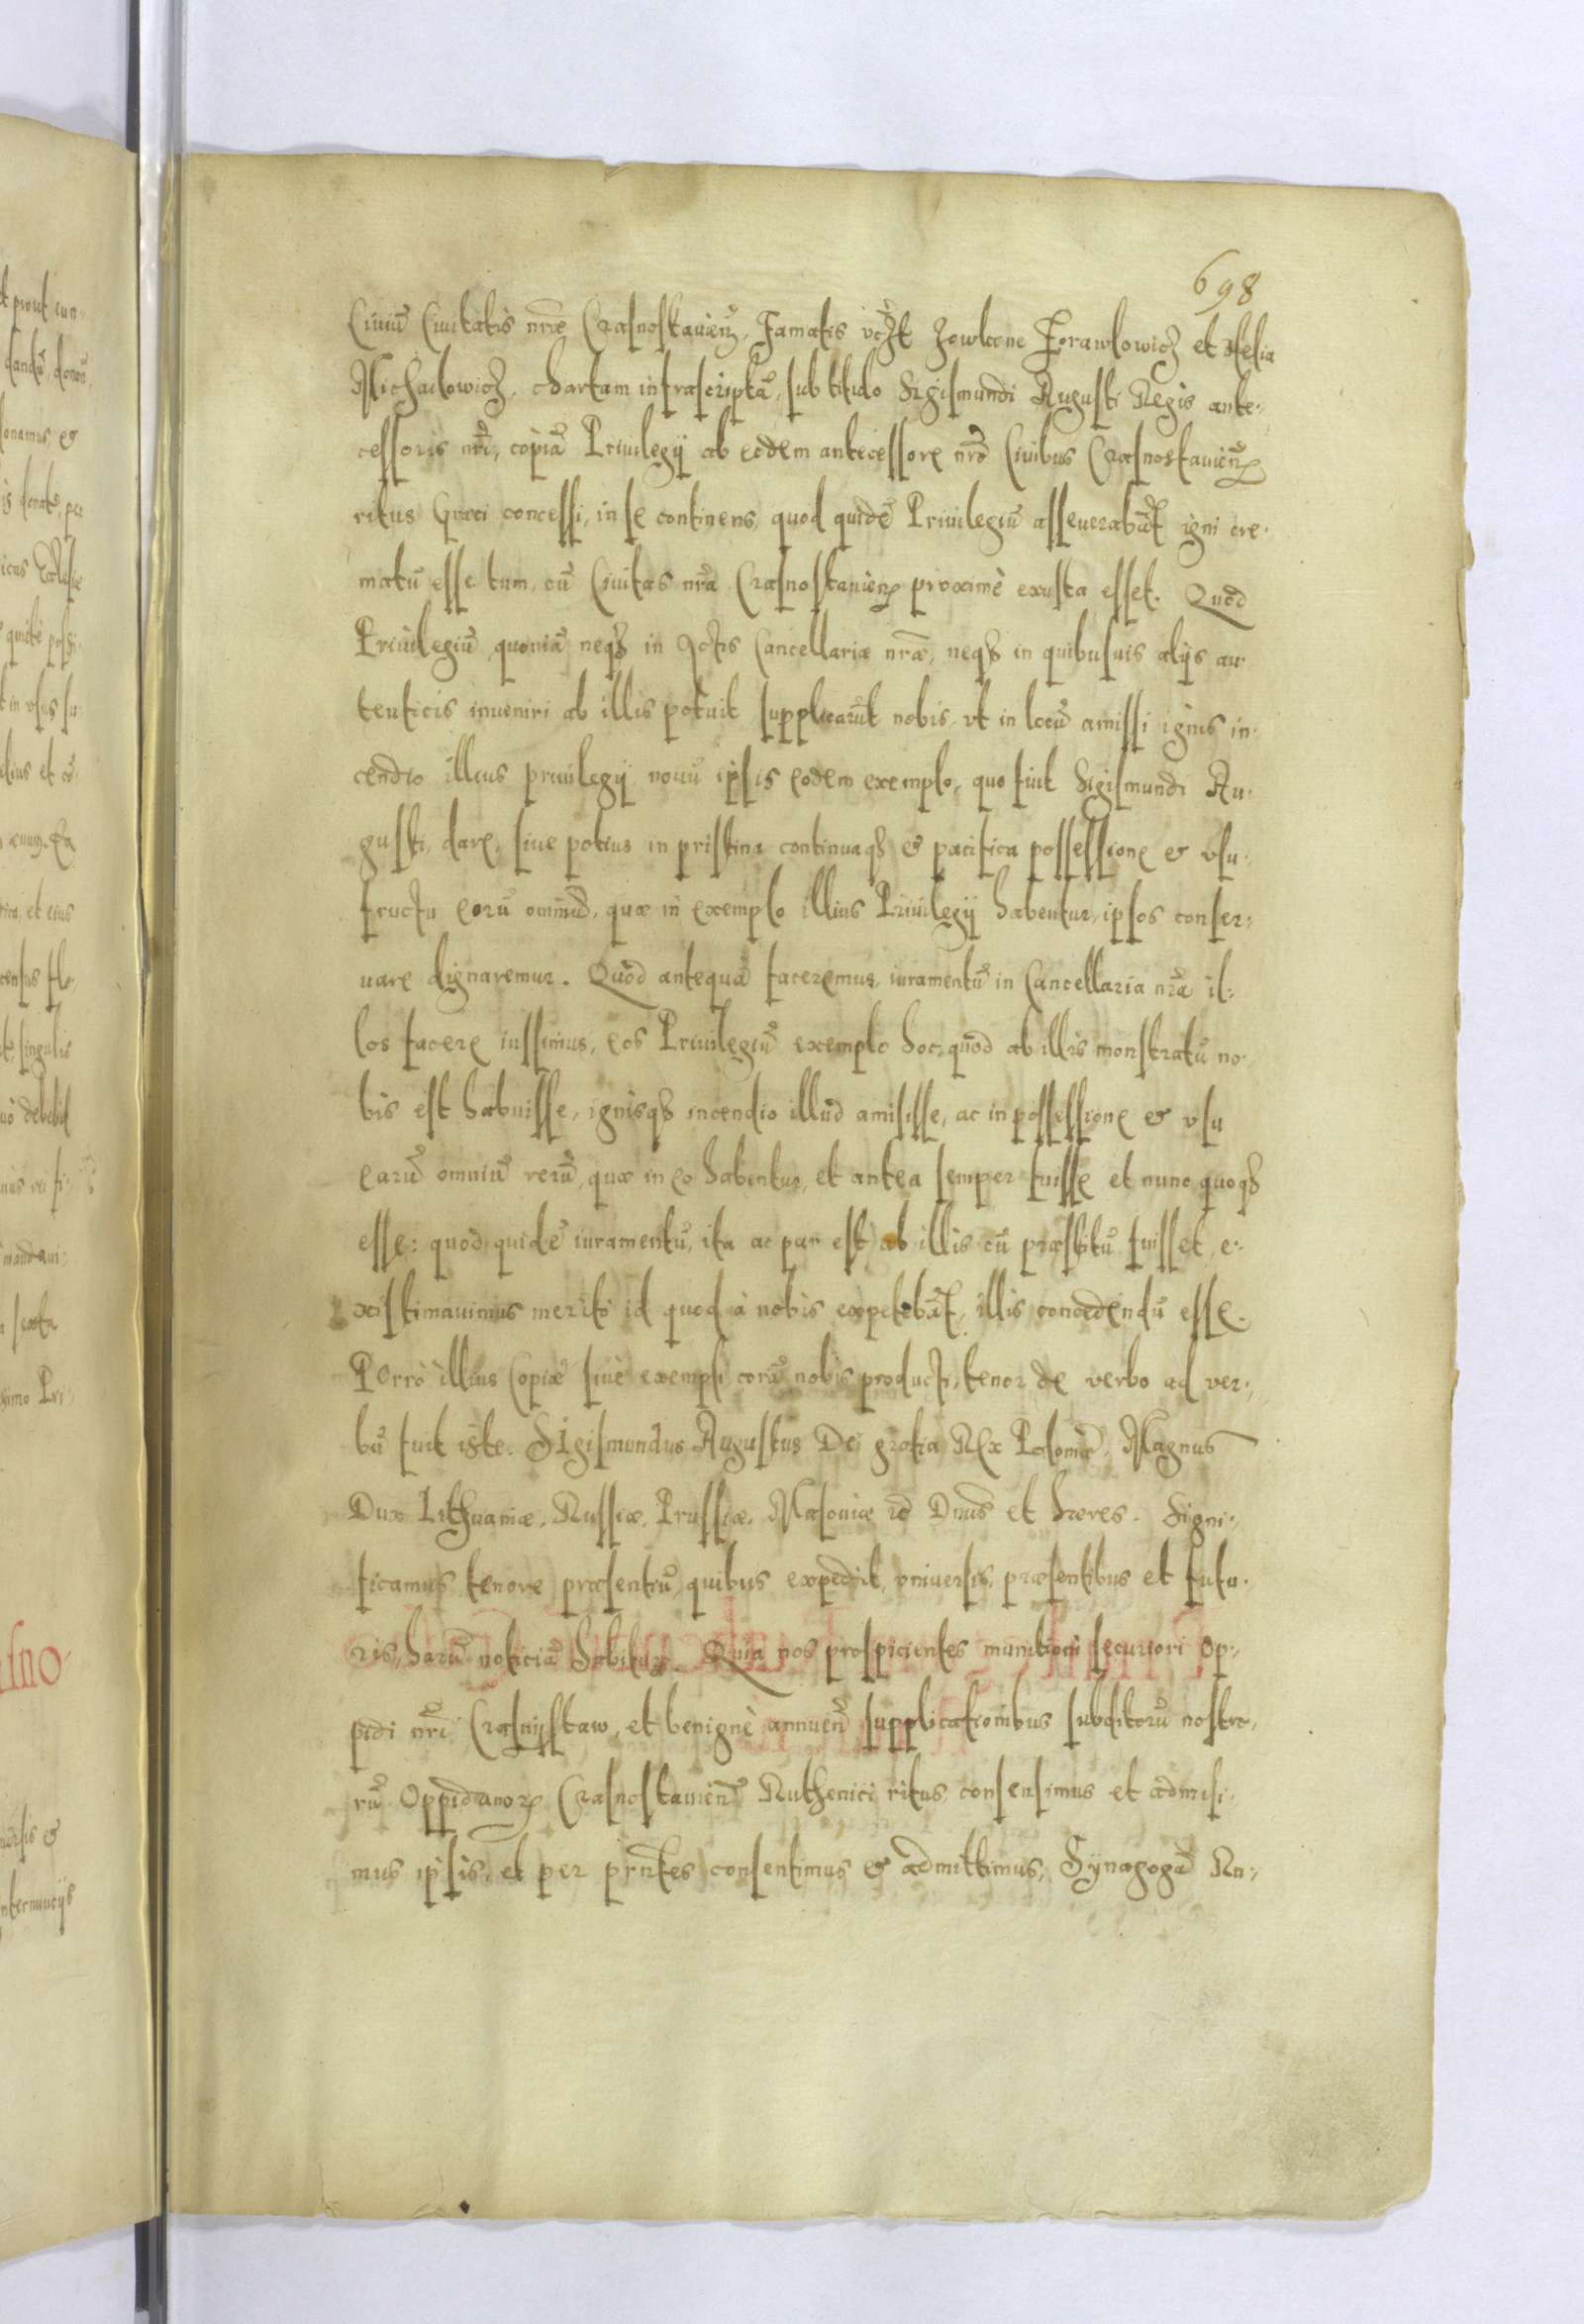 698
Ciuiũ Ciuitatis nr̃æ Crasnostauieñ, Famatis vcz̃t Zowleone Forawlowicz et Helia
Michaelowicz, chartam infrascriptã, sub titulo Sigismundi Augusti Regis ante⸗
cessoris nr̃i, copiã Priuilegij ab eodem antecessore nr̃o Ciuibus Crasnostauieñ
ritus Græci concessi, in se continens, quod quidẽ Priuilegiũ asseuerabãt igni cre⸗
matũ esse tum, cũ Ciuitas nr̃a Crasnostauieñ proximè exusta esset. Quod
Priuilegiũ quoniã neqȝ in Actis Cancellariæ nr̃æ, neqȝ in quibusuis alijs au⸗
tenticis inueniri ab illis potuit supplicarũt nobis, vt in locũ amissi ignis in⸗
cendio illius priuilegij nouũ ipsis eodem exemplo, quo fuit Sigismundi Au⸗
gusti, dare, siue potius in pristina continuaqȝ & pacifica possessione & vsu⸗
fructu eorũ omniũ, quæ in exemplo illius Priuilegij habentur, ipsos conser⸗
uare dignaremur. Quod antequã faceremus, iuramentũ in Cancellaria nr̃a il⸗
los facere iussimus, eos Priuilegiũ exemplo hoc, quod ab illis monstratũ no⸗
bis est habuisse, ignisqȝ incendio illud amisisse, ac in possessione & vsu
earũ omniũ rerũ, quæ in eo habentur, et antea semper fuisse et nunc quoqȝ
esse: quod quidẽ iuramentũ, ita ac par est ab illis cũ præstitũ fuisset, e⸗
xistimauimus meritò id quod à nobis expetebãt, illis concedendũ esse.
Porrò illius Copiæ siuè exempli corã nobis producti, tenor de verbo ad ver⸗
bũ fuit iste. Sigismundus Augustus Dei gratia Rex Poloniæ, Magnus
Dux Lithuaniæ, Russiæ, Prussiæ, Masouiæ ꝛc̃ Dnũs et hæres. Signi⸗
ficamus tenore præsentiũ, quibus expedit, vniuersis, præsentibus et futu⸗
ris, harũ noticiã habituris. Quia nos prospicientes munitioni securiori Op⸗
pidi nr̃i Crasnijstaw, et benignè annueñ supplicationibus subditorũ nostro⸗
rũ Oppidanorꝝ Crasnostauieñ Ruthenici ritus consensimus et admisi⸗
mus ipsis, et per pr̃ntes consentimus & admittimus, Synagogã Ru⸗